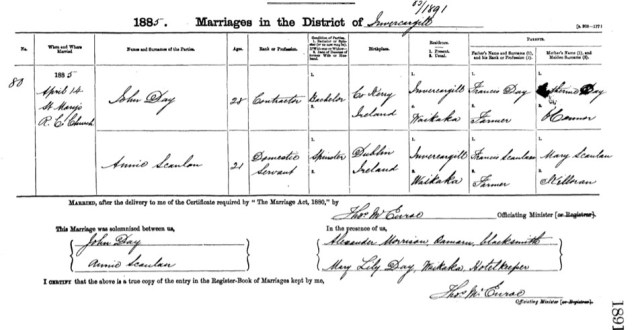 53/1891
1885. Marriages in the District of Invercargill
No. When and Where Married. Names and Surnames of the Parties. Ages. Rank or Profession. Birthplace. Residence. 1. Present. 2. Usual. Parents. Father's Name and Surname Mother's Name
80
1885
April 14
St Mary's
R. C. Church
John Day 28 Contractor Bachelor Co Kerry Ireland Invercargill Waikaka Francis Day Farmer Day O'Connor
Annie Scanlan 21 Domestic Servant Spinster Dublin Ireland Invercargill Waikaka Francis Scanlan Farmer Mary Scanlan
Married, after the delivery to me of the Certificate required by "The Marriage Act, 1880," by
Thos Mc Enroe Officiating Minister [or Registrar].
This Marriage was solemnised between us,
John Day
Annie Scanlan
In the presence of us,
Alexander Morrison, Oamaru, blacksmith
Mary Lily Day, Waikaka, Hotelkeeper
I certify that the above is a true copy of the entry in the Register-Book of Marriages kept by me,
Thos Mc Enroe
Officiating Minister [or Registrar].
1891